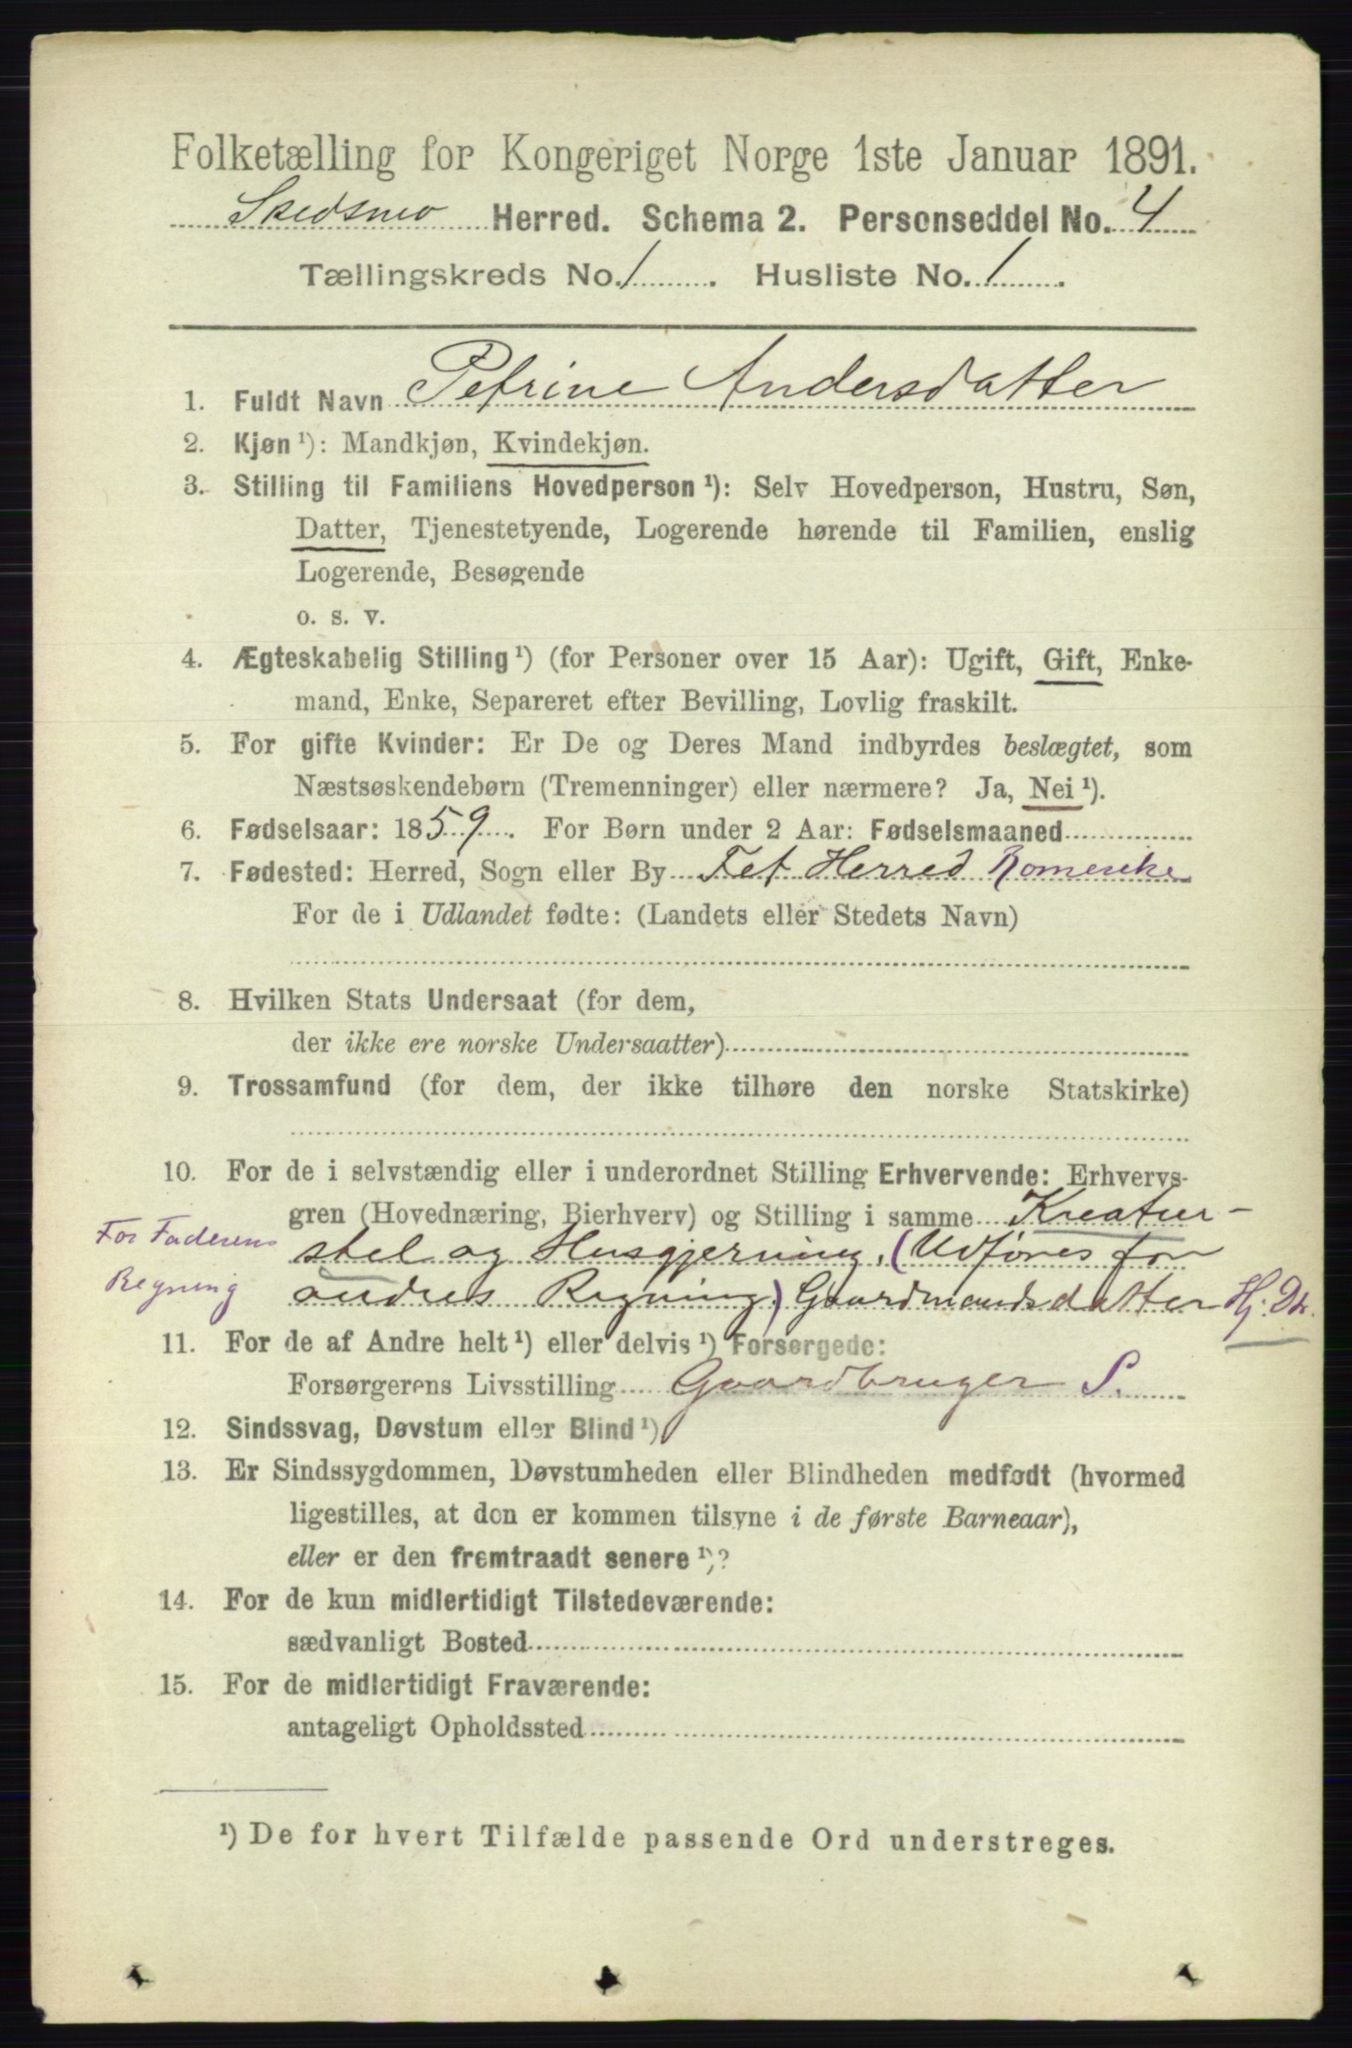 Folketælling for Kongeriget Norge 1ste Januar 1891.
Skedsmo Herred. Schema 2. Personseddel No. 4
Tællingskreds No. 1. Husliste No. 1.
1. Fuldt Navn Petrine Andersdatter
2. Kjøn ¹): Mandkjøn, Kvindekjøn.
3. Stilling til Familiens Hovedperson ¹): Selv Hovedperson, Hustru, Søn,
Datter, Tjenestetyende, Logerende hørende til Familien, enslig
Logerende, Besøgende
o. s. v.
4. Ægteskabelig Stilling ¹) (for Personer over 15 Aar): Ugift, Gift, Enke-
mand, Enke, Separeret efter Bevilling, Lovlig fraskilt.
5. For gifte Kvinder: Er De og Deres Mand indbyrdes beslægtet, som
Næstsøskendebørn (Tremenninger) eller nærmere? Ja, Nei ¹).
6. Fødselsaar: 1859. For Børn under 2 Aar: Fødselsmaaned
7. Fødested: Herred, Sogn eller By Fet Herred Romerike
For de i Udlandet fødte: (Landets eller Stedets Navn)
8. Hvilken Stats Undersaat (for dem,
der ikke ere norske Undersaatter)
9. Trossamfund (for dem, der ikke tilhøre den norske Statskirke)
10. For de i selvstændig eller i underordnet Stilling Erhvervende: Erhvervs-
gren (Hovednæring, Bierhverv) og Stilling i samme Kreatur-
For Faderens stel og Husgjerning. (Udføres for
Regning andres Regning) Gaardmandsdatter Hj. Dtr.
11. For de af Andre helt ¹) eller delvis ¹) Forsørgede:
Forsørgerens Livsstilling Gaardbruger S.
12. Sindssvag, Døvstum eller Blind ¹)
13. Er Sindssygdommen, Døvstumheden eller Blindheden medfødt (hvormed
ligestilles, at den er kommen tilsyne i de første Barneaar),
eller er den fremtraadt senere ¹)?
14. For de kun midlertidigt Tilstedeværende:
sædvanligt Bosted
15. For de midlertidigt Fraværende:
antageligt Opholdssted
¹) De for hvert Tilfælde passende Ord understreges.